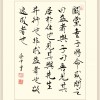 闕黨童子將命或問之
曰益者與子曰吾見其
居於位也見其與先生
並行也非求益者也欲
速成者也